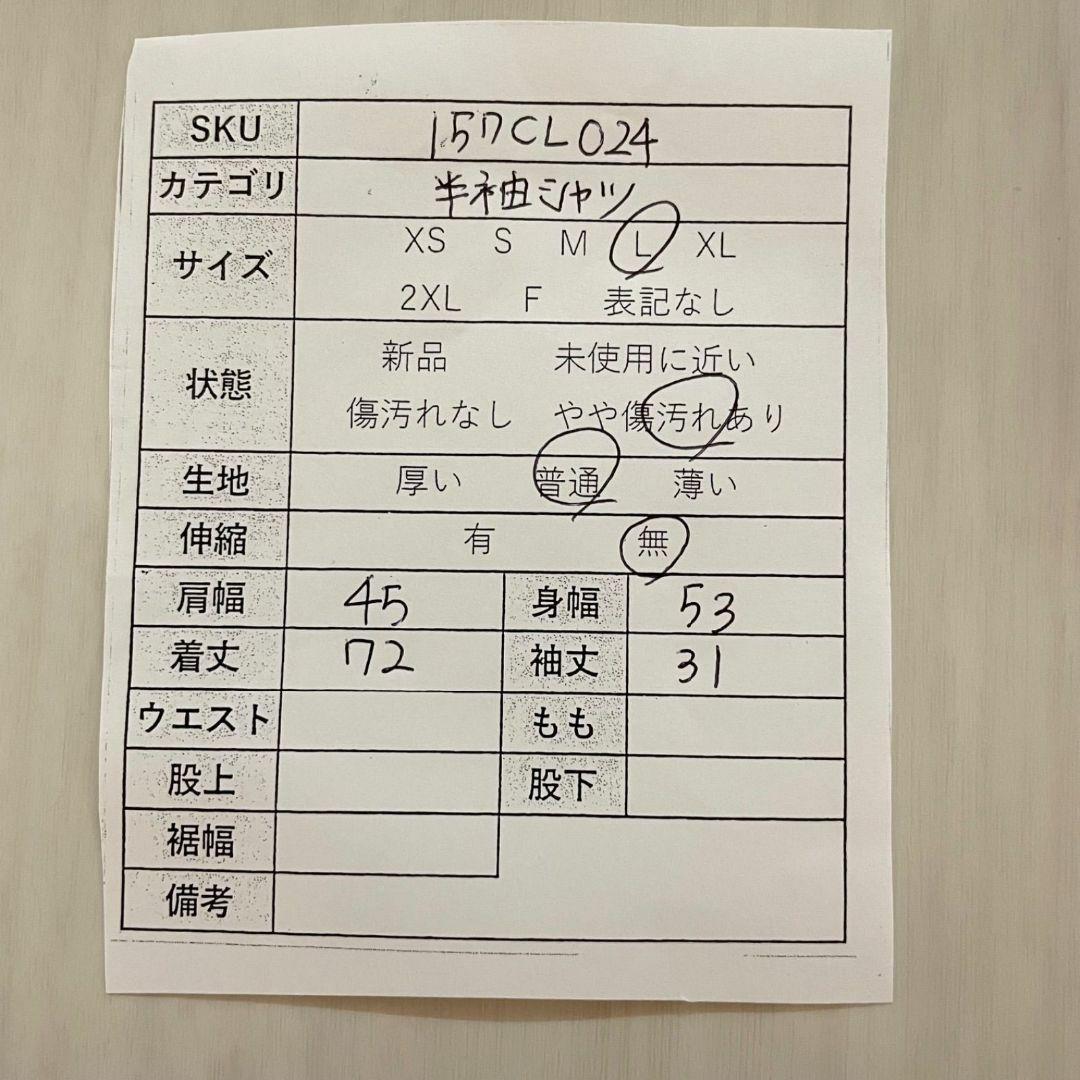 SKU 157CL024
カテゴリ 半袖シャツ
サイズ XS S M L XL
2XL F 表記なし
状態 新品 未使用に近い
傷汚れなし やや傷汚れあり
生地 厚い 普通 薄い
伸縮 有 無
肩幅 45 身幅 53
着丈 72 袖丈 31
ウエスト もも
股上 股下
裾幅
備考